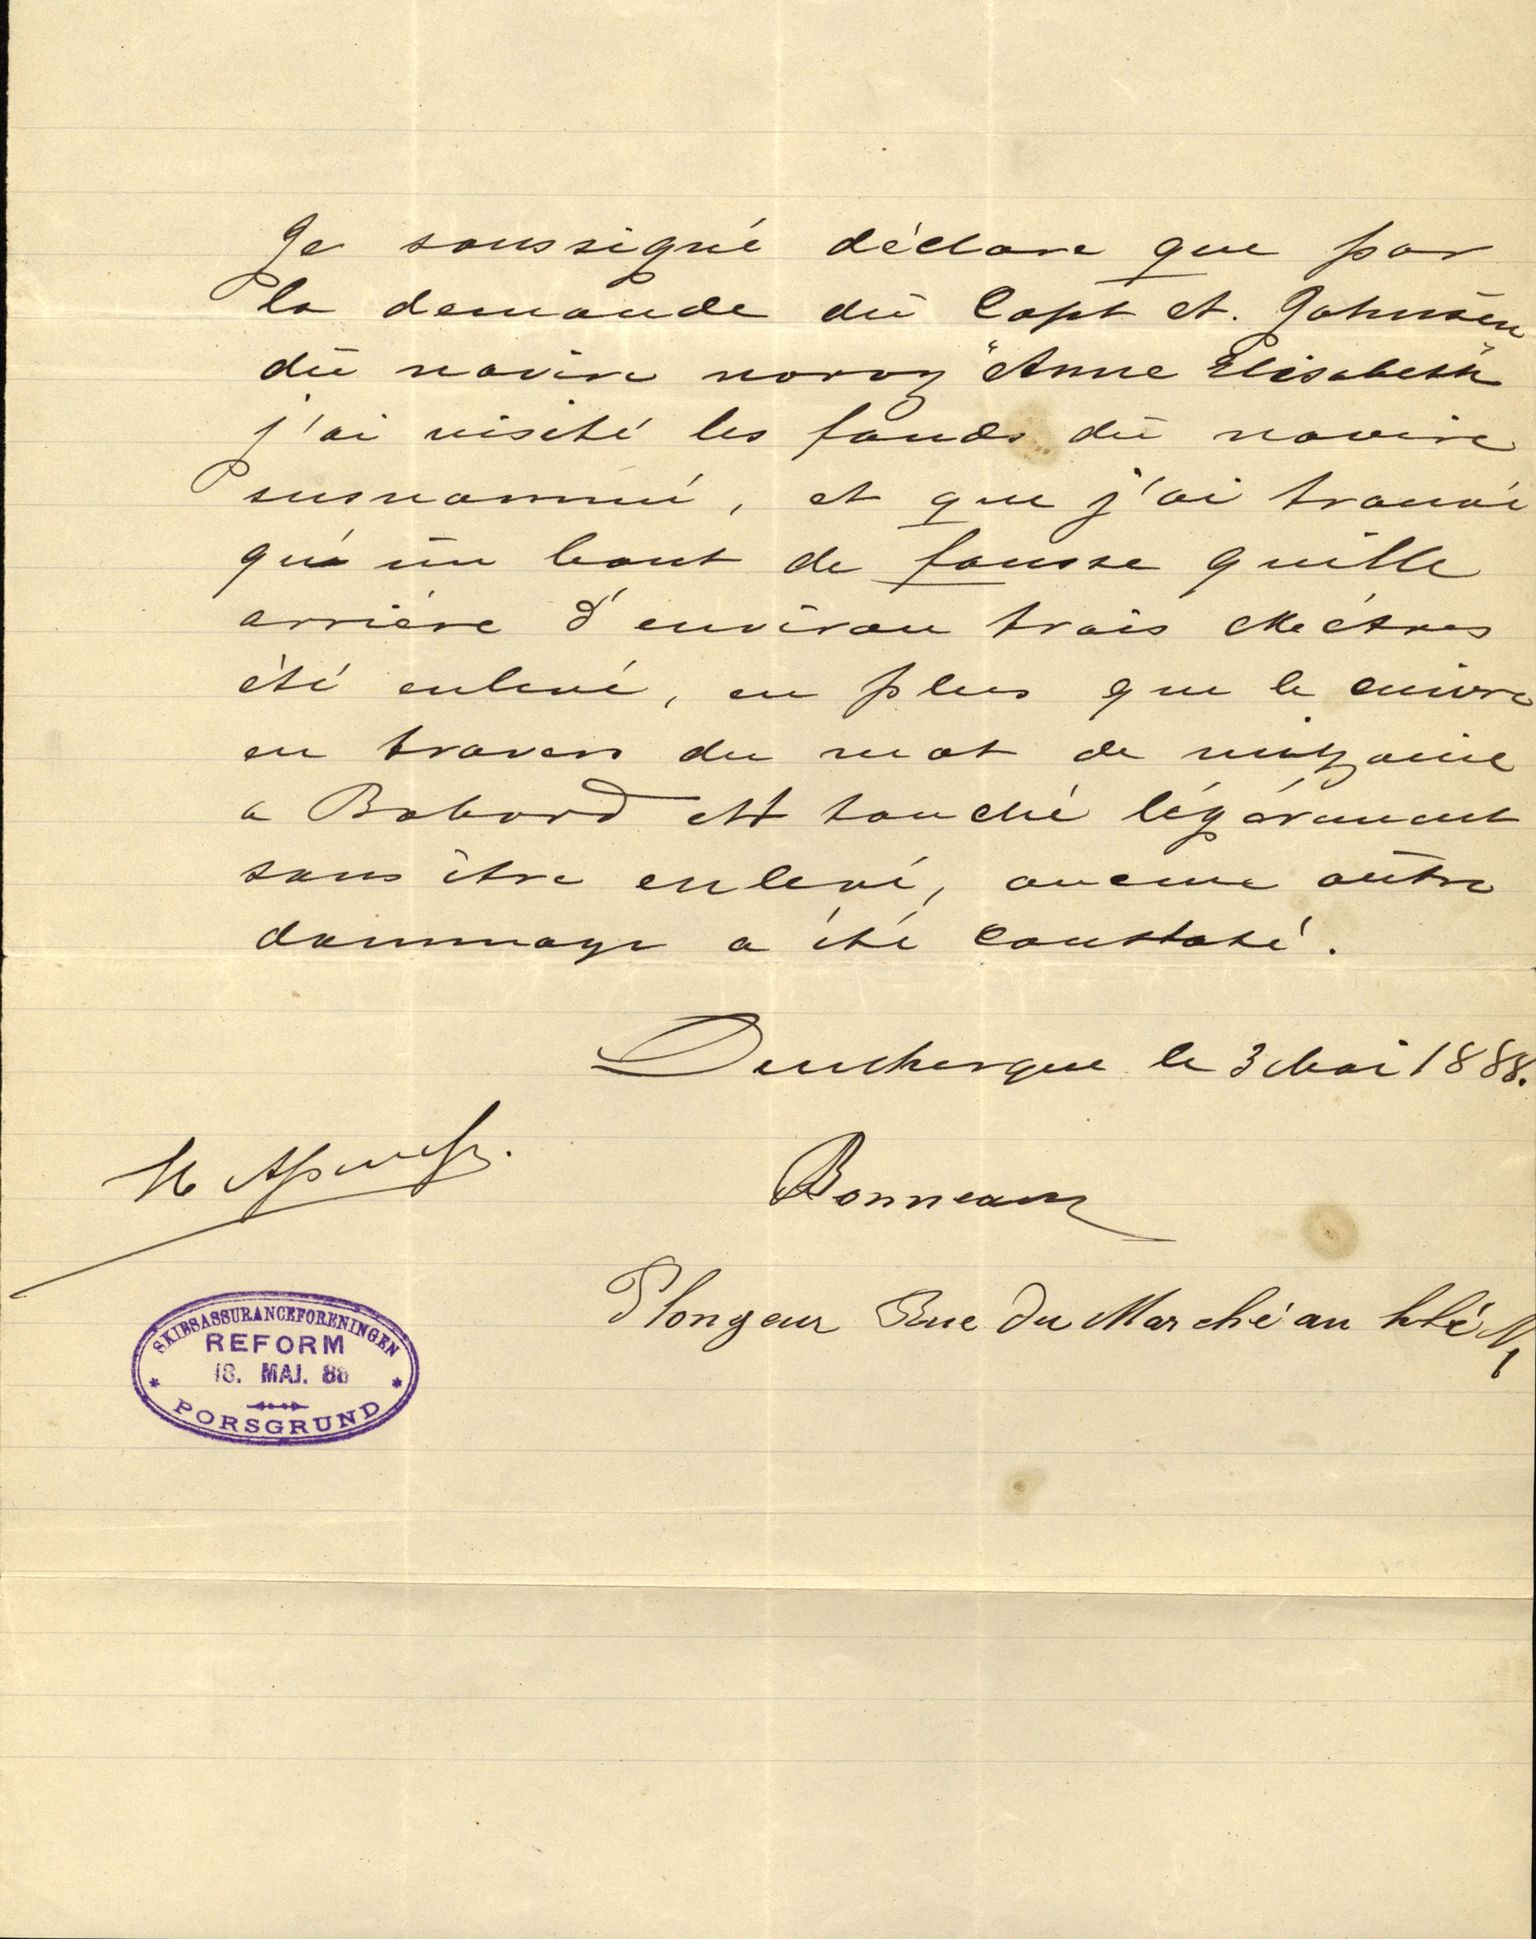 Je soussigné déclare que par
la demande dū Capt A. Johnsen
dū navire norvg "Anne Elisabeth"
j'ai visité les fonds dū navire
susnommé, et que j'ai trouvé
qu'ūn bout de fausse quille
arrière d'environ trois Mètres
été enlevé, en plus que le cuivre
en travers du mat de mitzaine
a Babord est touché légérement
sans être enlevé, aucune aūtre
dommage a été constaté.
Dunkerque le 3 Mai 1888.
Bonneau
Plongeur Rue du Marché au blé N 1
SKIBSASSURANCEFORENINGEN
REFORM
18. MAJ. 88
PORSGRUND